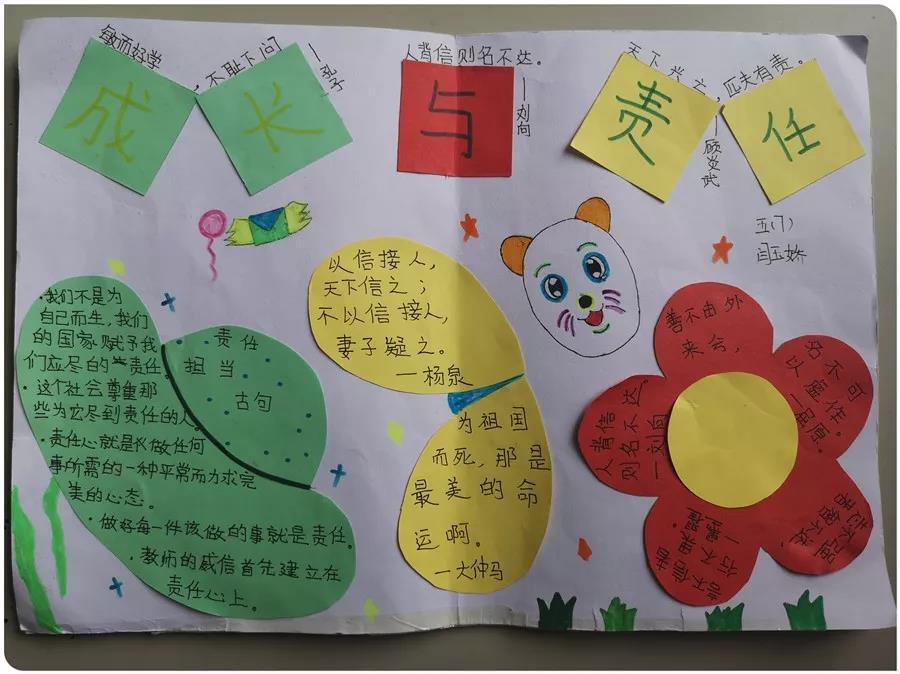 敏而好学
,不耻下问
人背信则名不达。
—刘向
天下兴亡,匹夫有责。
—顾炎武
成长与责任
五(7)
·我们不是为
自己而生,我们
的国家赋予我
们应尽的责任。
·这个社会尊重那
些为它尽到责任的人。
·责任心就是我做任何
事所需的一种平常而力求完
美的心态。
·做好每一件该做的事就是责任。
·教师的威信首先建立在
责任心上。
责任
担当
古句
以信接人,
天下信之;
不以信接人,
妻子疑之。
—杨泉
为祖国
而死,那是
最美的命
运啊。
—大仲马
善不由外
来兮,
名不可
以虚作。
—屈原
人背信
则名不达。
—刘向
言不信者
行不果